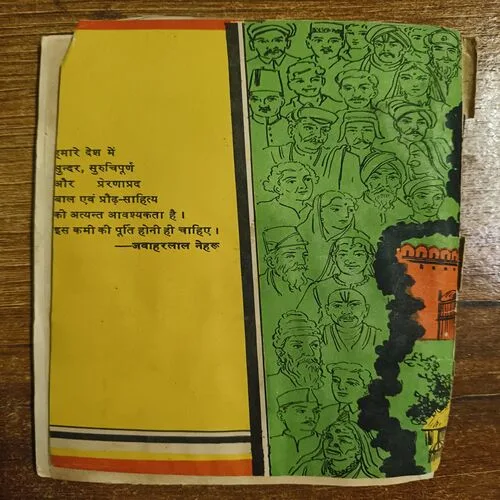 हमारे देश में
सुन्दर, सुरुचिपूर्ण
और प्रेरणाप्रद
बाल एवं प्रौढ़-साहित्य
की अत्यन्त आवश्यकता है ।
इस कमी की पूर्ति होनी ही चाहिए ।
—जवाहरलाल नेहरू